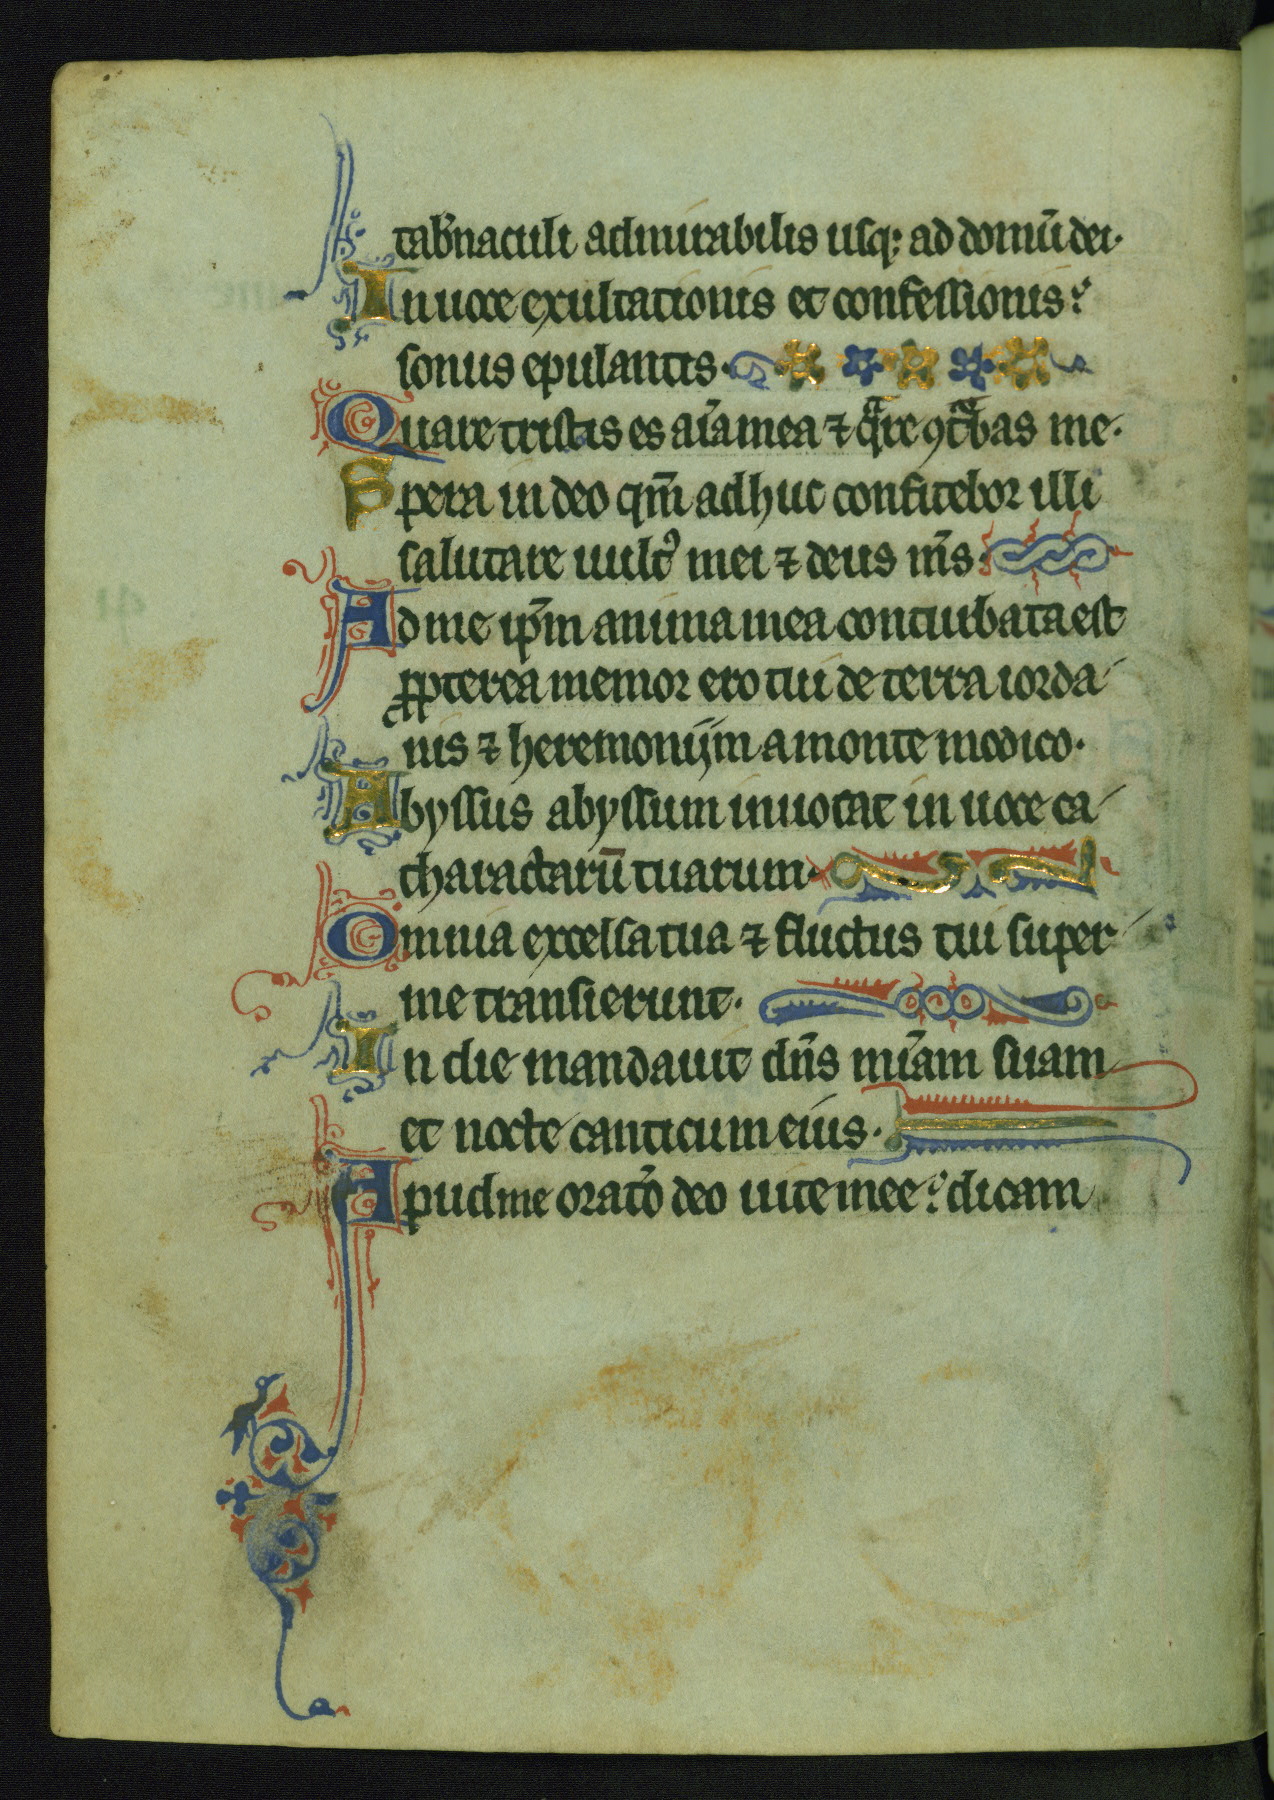 tab̄naculi admirabilis usq; ad domū dei·
In uoce exultationis et confessionis:
sonus epulantis·
Quare tristis es aīa mea ⁊ qͣre ꝯtͬbas me·
Spera in deo qm̄ adhuc confitebor illi
salutare uult᾿ mei ⁊ deus m̄s·
Ad me ip̄m anima mea conturbata est
ꝓpterea memor ero tui de terra iorda
nis ⁊ heremonijm a monte modico·
Abyssus abyssum inuocat in uoce ca
tharactarū tuarum·
Omnia excelsa tua ⁊ fluctus tui super
me transierunt·
In die mandauit dn̄s mīam suam
et nocte canticum eius·
Apud me orat̄o deo uite mee: dicam